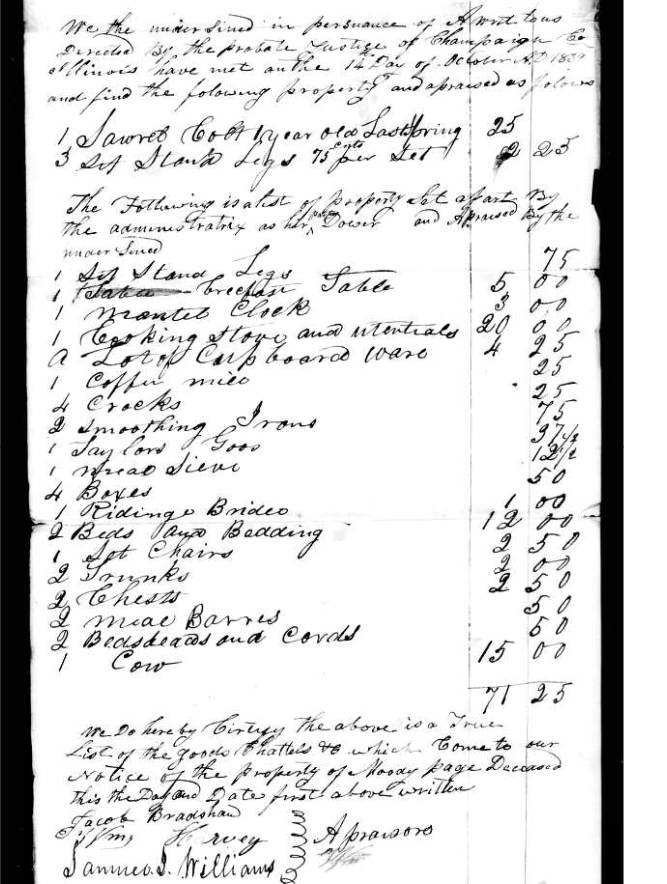 We the under Sined in persuance of A writ to us
Directed By the probate Justice of Champaign Co
Illinois have met on the 14 Day of October AD 1839
and find the folowing property and apraised as folows
1 Sawrel Colt 1 year old Last Spring 25
3 Set Stand Legs 75 cents per Set 2 25
The Following is a list of property Set apart By
the administratrix as her Dower and Apraised By the
under Sined
1 Set Stand Legs 75
1 Brecfast Table 5 00
1 Mantel Clock 3 00
1 Cooking Stove and utentials 20 00
a Lot of Cupboard ware 4 25
1 Coffee mill 25
4 Crocks 25
2 Smoothing Irons 75
1 Taylors Goos 37 1/2
1 meal Sieve 12 1/2
4 Boxes 50
1 Riding Bridel 1 00
2 Beds and Bedding 12 00
1 Set Chairs 2 50
2 Trunks 2 00
2 Chests 2 50
2 meal Barrels 50
2 Bedsteads and Cords 50
1 Cow 15 00
71 25
We Do hereby Certify the above is a True
List of the goods Chattels &c which Come to our
Notice of the property of Moody Page Deceased
this the Day and Date first above written
Jacob Bradshaw
Wm Harvey Apraisors
Samuel S. Williams